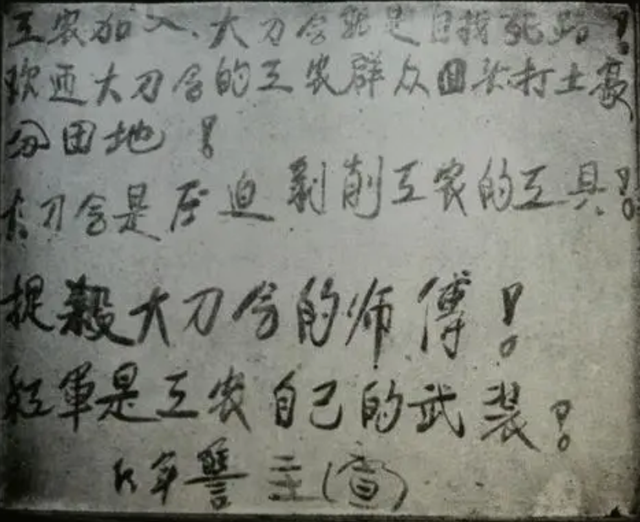 工农加入、大刀会就是自找死路！
欢迎大刀会的工农群众回头打土豪
分田地！
大刀会是压迫剥削工农的工具！
捉殺大刀会的师傅！
紅軍是工农自己的武装！
红军 主(宣)